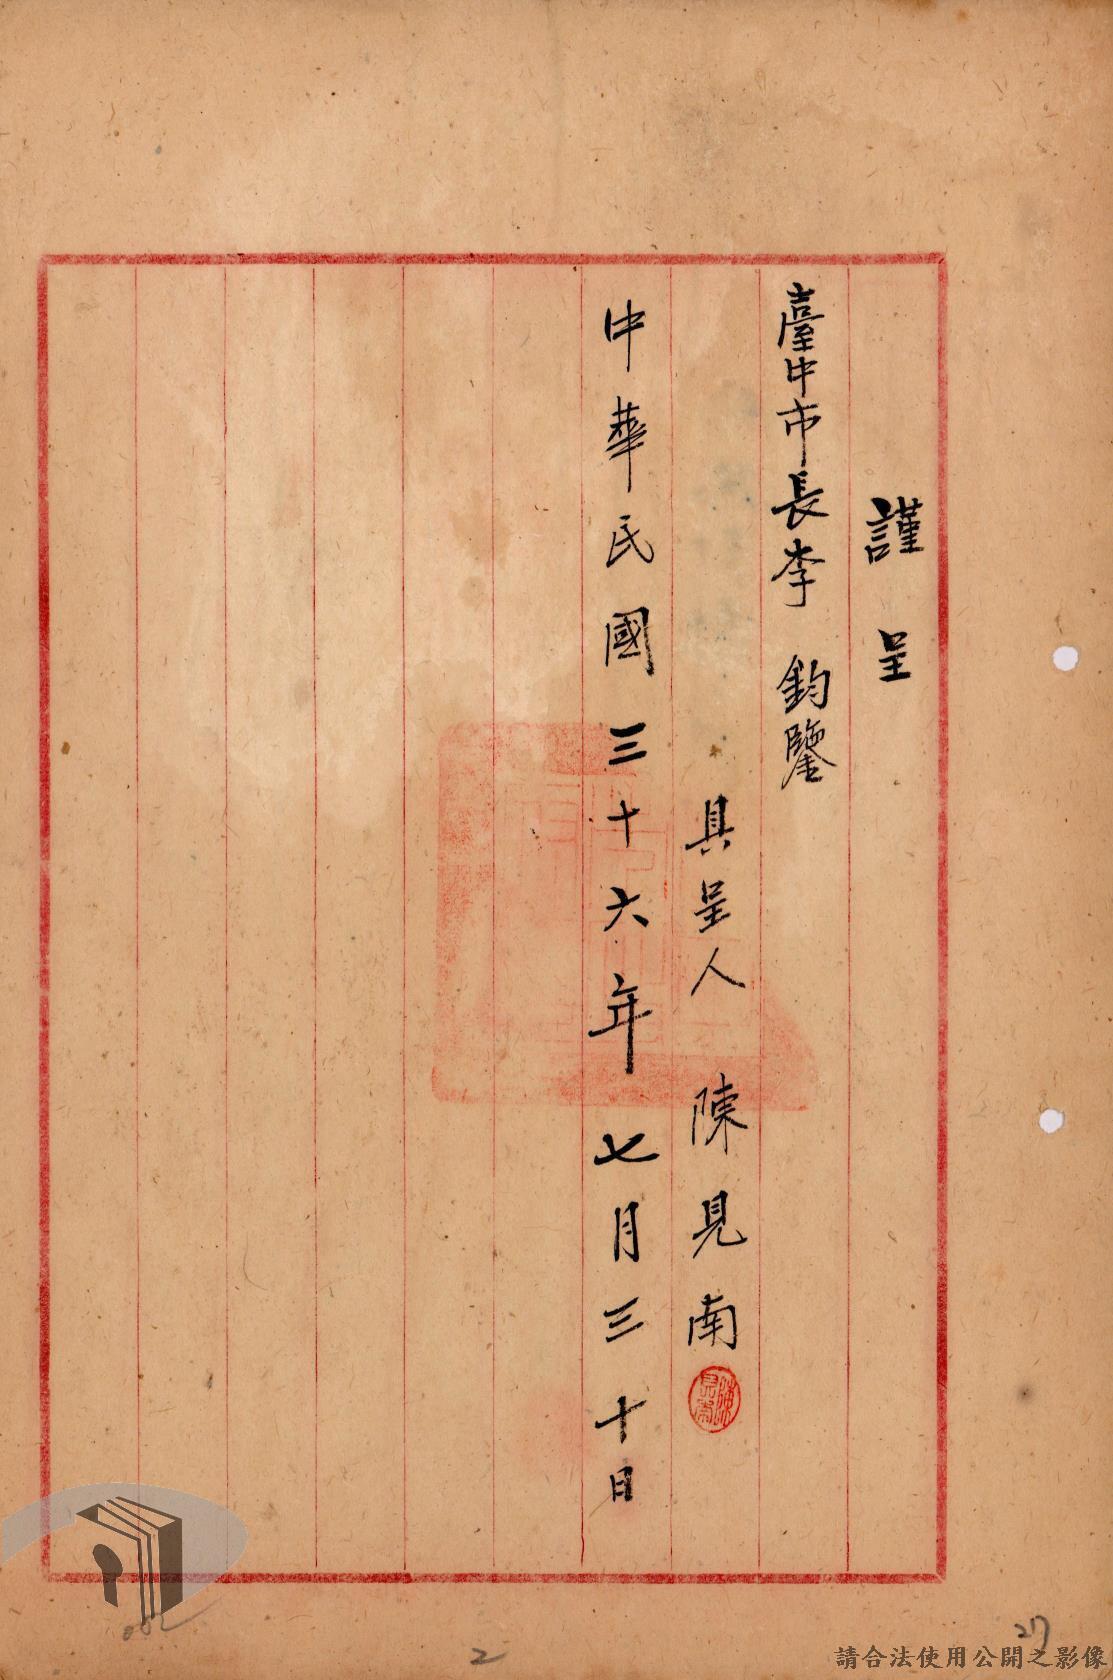 謹呈
臺中市長李 鈞鑒
具呈人 陳見南
陳見南
中華民國三十六年七月三十日
002
2
27
請合法使用公開之影像